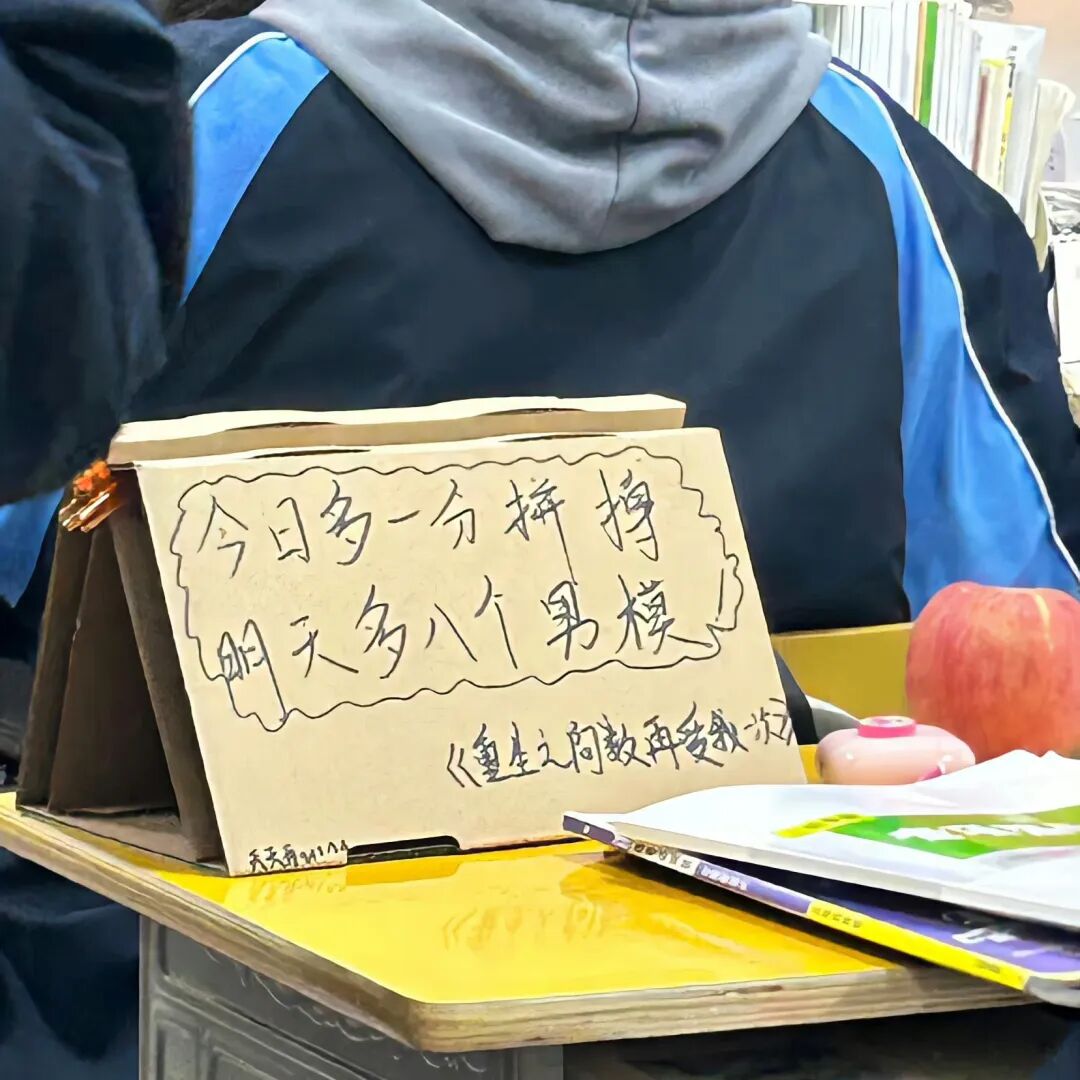 今日多一分拼搏
明天多八个男模
《重生之间数再爱我一次》
天天